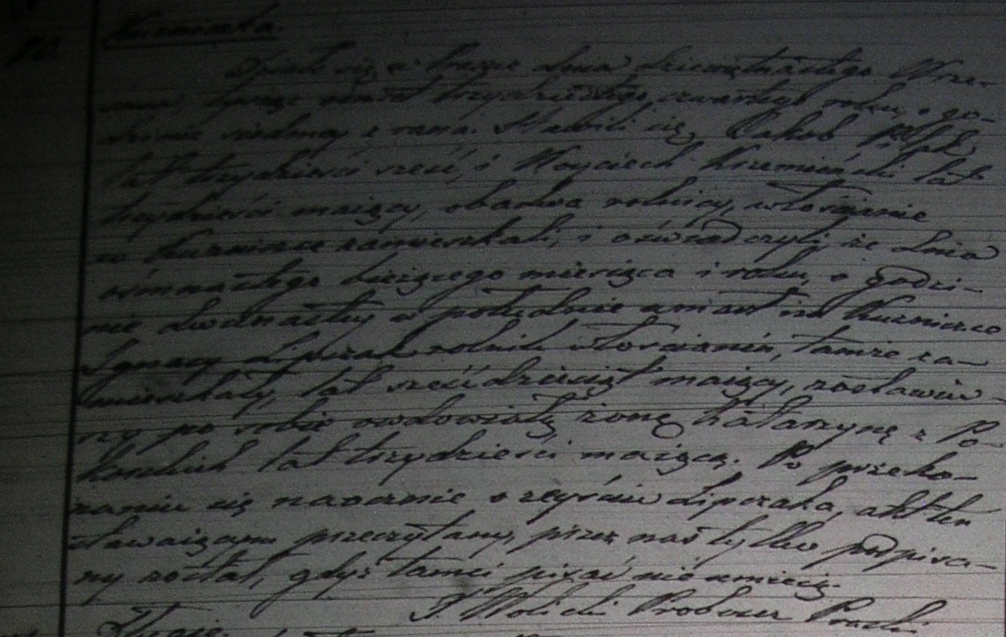 Kuźniczka.
Działo się w Pracze dnia dziewiętnastego Wrze-
śnia tysiąc ośmset trzydziestego czwartego roku, o go-
dzinie siódmej z rana. Stawili się, Jakub
lat trzydzieści sześć, i Woyciech Krzemiński lat
trzydzieści maiący, obadwa rolnicy, włościanie
w zamieszkali, i oświadczyli że dnia
ośmnastego bieżącego miesiąca i roku, o godzi-
nie dwunastey w południe umarł na
Ignacy Lipczak rolnik włościanin, tamże za-
mieszkały, lat sześćdziesiąt maiący, zostawiw-
szy po sobie owdowiałą żonę Katarzynę z Po-
lat trzydzieści maiącą. Po przeko-
naniu się naocznie o zeyściu Lipczaka, akt ten
stawaiącym przeczytany, przez nas tylko podpisa-
ny został, gdyż tamci pisać nie umieią
X. Wolicki Proboszcz